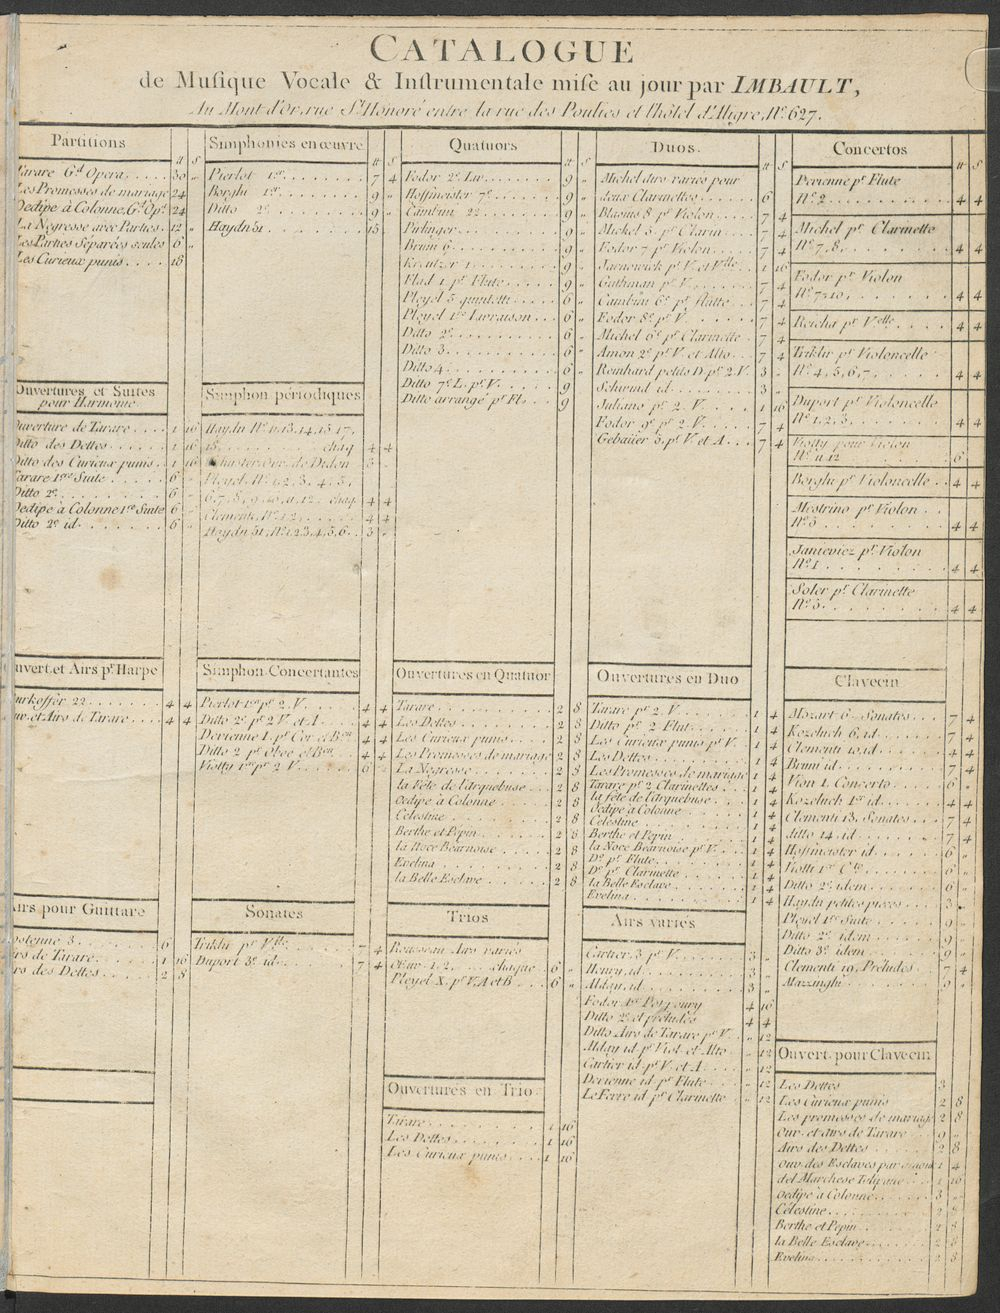 CATALOGUE
de Musique Vocale & Instrumentale mise au jour par IMBAULT,
Au Mont d'Or, rue St Honoré entre la rue des Poulies et l'hôtel d'Aligre, No. 627.
Partitions
# s
Tarare Gd Opera . . . . 30 "
Les Promesses de mariage 24
Oedipe à Colonne, Gd Opa. 24
La Négresse avec Parties. 12 "
Les Parties Séparées seules 6 "
Les Curieux punis . . . . 18
Ouvertures et Suites
pour Harmonie.
Ouverture de Tarare . . . 1 16
Ditto des Dettes . . . . 1 16
Ditto des Curieux punis . . 1 16
Tarare 1re Suite . . . . 6 "
Ditto 2e . . . . . 6 "
Oedipe à Colonne 1re Suite 6 "
Ditto 2e id . . . . . 6 "
uvert. et Airs pr Harpe
urkoffer 22 . . . . 4 4
uv. et Airs de Tarare . . . 4 4
Airs pour Guittare
3 . . . . . 6
rs de Tarare . . . . 1 16
rs des Dettes . . . . 2 8
Simphonies en œuvre
# s
Pierlot 1er . . . . 7 4
Borghi 1er . . . . 9 "
Ditto 2e . . . . 9 "
Haydn 51 . . . . 15 "
Simphon périodiques
Haydn No. 11, 13, 14, 15, 17,
18 . . . . chaq 4 4
Schuster Ouv. de Didon 3
Pleyel, No. 1, 2, 3, 4, 5,
6, 7, 8, 9, 10, 11, 12, chaq 4 4
Clementi, No. 1, 2 . . . . 4 4
Haydn 51, No. 1, 2, 3, 4, 5, 6 . . 3 "
Simphon Concertantes
Pierlot 1re pr 2. V . . . . 4 4
Ditto 2e pr 2 V. et A . . . . 4 4
Devienne 1. pr Cor et Bon 4 4
Ditto 2 pr Oboe et Bon 4 4
Viotty 1re pr 2 V . . . . 6
Sonates
Triklir pr Vlle . . . . 7 4
Duport 3e id . . . . 7 4
Quatuors
# s
Fodor 2e Liv . . . . 9 "
Hoffmeister 7e . . . . 9 "
Cambin 22 . . . . 9 "
Pirlinger . . . . 9 "
Bruni 6 . . . . 9 "
Kreutzer 1 . . . . 9 "
Flad 1. pr Flute . . . . 9 "
Pleyel 3 quintetti . . . . 6 "
Pleyel 1re Livraison . . . 6 "
Ditto 2e . . . . 6 "
Ditto 3 . . . . 6 "
Ditto 4 . . . . 6 "
Ditto 7e L. pr V . . . . 9
Ditto arrangé pr Fl . . 9
Ouvertures en Quatuor
Tarare . . . . 2 8
Les Dettes . . . . 2 8
Les Curieux punis . . . . 2 8
Les Promesses de mariage 2 8
La Négresse . . . . 2 8
la Fête de l'arquebuse . . . 2 8
Oedipe à Colonne . . . . 2 8
Célestine . . . . 2 8
Berthe et Pepin . . . . 2 8
la Noce Béarnoise . . . . 2 8
Evelina . . . . 2 8
la Belle Esclave . . . . 2 8
Trios
Rousseau Airs variés
Œuv. 1. 2. . . . chaque 6 "
Pleyel X. pr V. A et B . . . 6 "
Ouvertures en Trio
Tarare . . . . 1 16
Les Dettes . . . . 1 16
Les Curieux punis . . . . 1 16
Duos.
# s
Michel airs variés pour
deux Clarinettes . . . . 6
Blasius 8 pr Violon . . . 7 4
Michel 5. pr Clarin . . . 7 4
Fodor 7 pr Violon . . . . 7 4
Jarnowick pr V. et Vlle . . 1 16
Guthman pr V . . . . 7 4
Cambini 6e pr flutte . . . 7 4
Fodor 8e pr V . . . . 7 4
Michel 6e pr Clarinette . . 7 4
Amon 2e pr V. et Alto . . . 7 4
Romhard petits D. pr 2. V. 3
Schwind id . . . . 3
Juliano pr 2. V . . . . 1 16
Fodor 9e pr 2. V . . . . 7 4
Gebauer 5. pr V et A . . . 7 4
Ouvertures en Duo
Tarare pr 2. V . . . . 1 4
Ditto pr 2 Flut . . . . 1 4
Les Curieux punis pr V. 1 4
Les Dettes . . . . 1 4
Les Promesses de mariage 1 4
Tarare pr 2 Clarinettes . . 1 4
la fête de l'arquebuse . . . 1 4
Oedipe à Colonne . . . . 1 4
Célestine . . . . 1 4
Berthe et Pepin . . . . 1 4
la Noce Béarnoise pr V . . . 1 4
Do pr Flute . . . . 1 4
Do pr Clarinette . . . . 1 4
la Belle Esclave . . . . 1 4
Evelina . . . . 1 4
Airs variés
Cartier 3 pr V . . . . 3 "
Henry, id . . . . 3 "
Alday, id . . . . 3 "
Fodor 1er Pot poury 4 16
Ditto 2e et préludes 4 4
Ditto Airs de Tarare pr V. " 12
Alday id pr Viol. et Alto . . " 12
Cartier id. pr V. et A . . . " 12
Devienne id pr Flute . . . " 12
Le Fevre id pr Clarinette . . " 12
Concertos
# s
Devienne pr Flute
No. 2 . . . . 4 4
Michel pr Clarinette
No. 7, 8 . . . . 4 4
Fodor pr Violon
No. 7, 10 . . . . 4 4
Reicha pr Vlle . . . . 4 4
Triklir pr Violoncelle
No. 4, 5, 6, 7 . . . . 4 4
Duport pr Violoncelle
No. 1, 2, 3 . . . . 4 4
Viotty pour Violon
No. 11 12 . . . . 6
Borghi pr Violoncelle . . 4 4
Mestrino pr Violon . .
No. 5 . . . . 4 4
Janieviez pr Violon
No. 1 . . . . 4 4
Soler pr Clarinette
No. 5 . . . . 4 4
Clavecin
Mozart 6 Sonates . . . 7 4
Kozeluch 6, id . . . . 7 4
Clementi 10, id . . . . 4 4
Bruni id . . . . 7 4
Vion 1. Concerto . . . . 6 "
Kozeluch 1er id . . . . 4 4
Clementi 13, Sonates . . . 7 4
ditto 14, id . . . . 7 4
Hoffmeister id . . . . 6 "
Viotti 1er Cto . . . . 6 "
Ditto 2e, idem . . . . 6 "
Haydn petites pieces . . . 3
Pleyel 1re Suite . . . . 9
Ditto 2e idem . . . . 9
Ditto 3e idem . . . . 9
Clementi 19, Préludes . . 7 4
Mazzinghi . . . . 9
Ouvert. pour Clavecin
Les Dettes 3
Les Curieux punis 2 8
Les promesses de mariage 2 8
Ouv. et Airs de Tarare . . 9 "
Airs des Dettes . . . . 2 8
Ouv. des Esclaves par 1 4
del Marchese Tulipano . . . 1 16
Oedipe à Colonne . . . . 3
Célestine . . . . 2 8
Berthe et Pepin . . . . 2 8
la Belle Esclave . . . . 2 8
Evelina . . . . 2 8